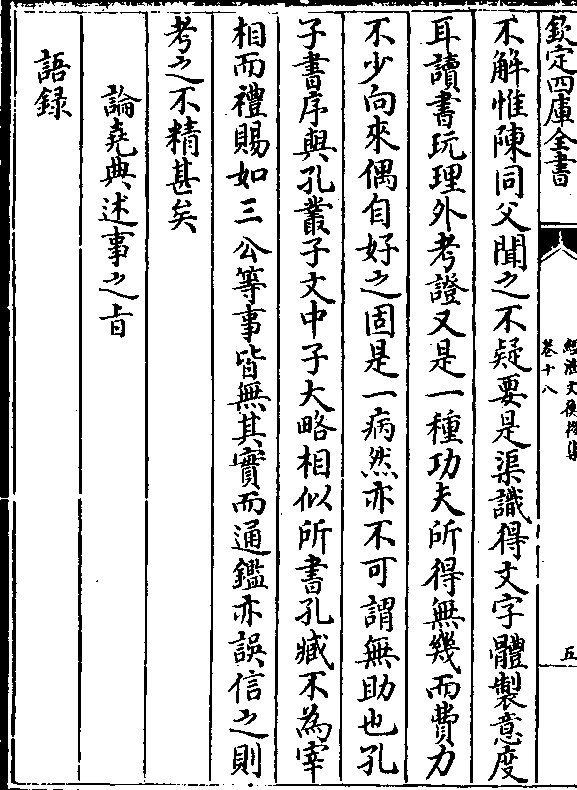 欽定四庫全書
經濟文衡後集
卷十八
五
不解惟陳同父聞之不疑要是渠識得文字體製意度
耳讀書玩理外考證又是一種功夫所得無幾而費力
不少向來偶自好之固是一病然亦不可謂無助也孔
子書序與孔叢子文中子大略相似所書孔臧不為宰
相而禮賜如三公等事皆無其實而通鑑亦誤信之則
考之不精甚矣
論堯典述事之㫖
語録